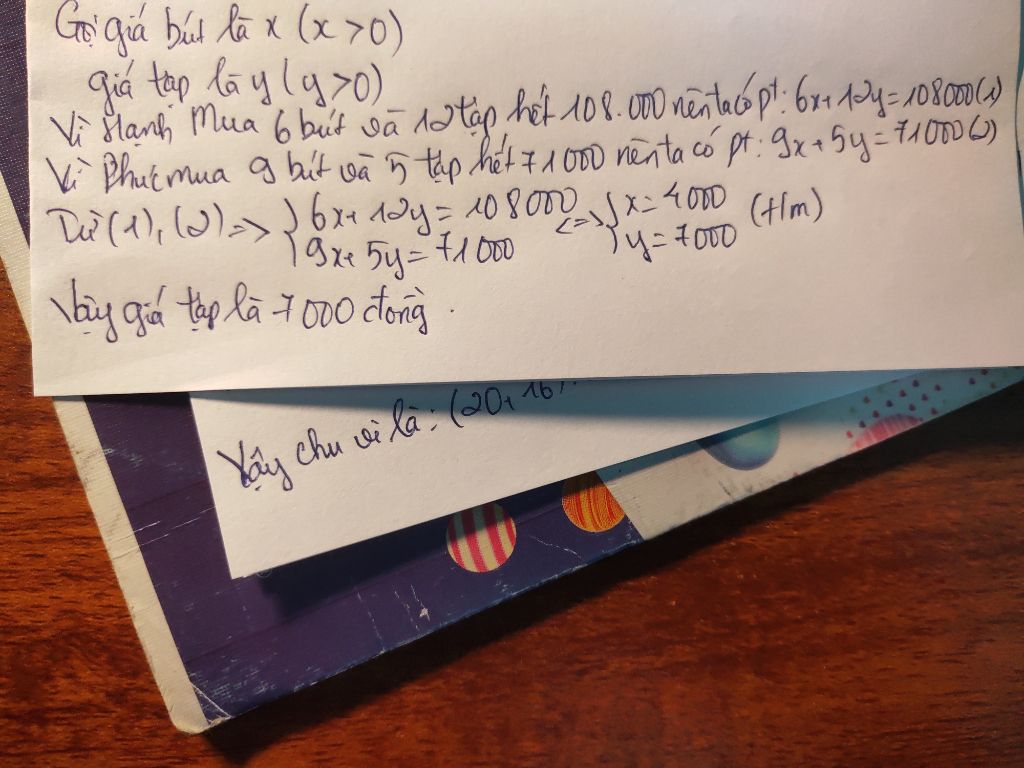 Gọi giá bút là x (x>0)
giá tập là y (y>0)
Vì Hạnh Mua 6 bút và 12 tập hết 108.000 nên ta có pt: 6x+12y=108000(1)
Vì Phúc mua 9 bút và 5 tập hết 71000 nên ta có pt: 9x+5y=71000(2)
Từ (1),(2)=> { 6x+12y=108000 <=> { x=4000 (t/m)
9x+5y=71000 y=7000
Vậy giá tập là 7000 đồng.
Vậy chu vi là: (20+16).